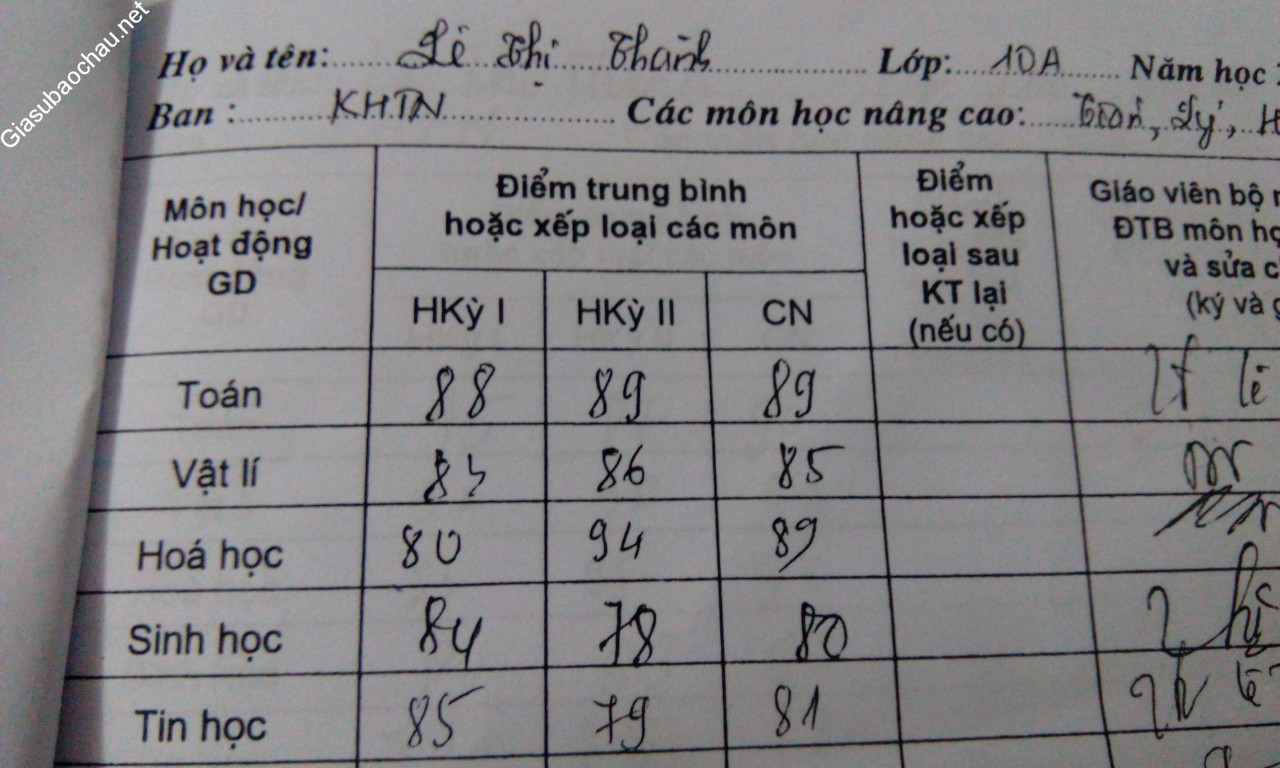 Giasubaochau.net
Họ và tên: Lê Thị Thanh Lớp: 10A Năm học
Ban : KHTN Các môn học nâng cao: Toán, Lý, H
Môn học/
Hoạt động
GD
Điểm trung bình
hoặc xếp loại các môn
Điểm
hoặc xếp
loại sau
KT lại
(nếu có)
Giáo viên bộ
ĐTB môn họ
và sửa c
(ký và g
HKỳ I HKỳ II CN
Toán 88 89 89
Vật lí 83 86 85
Hoá học 80 94 89
Sinh học 84 78 80
Tin học 85 79 81